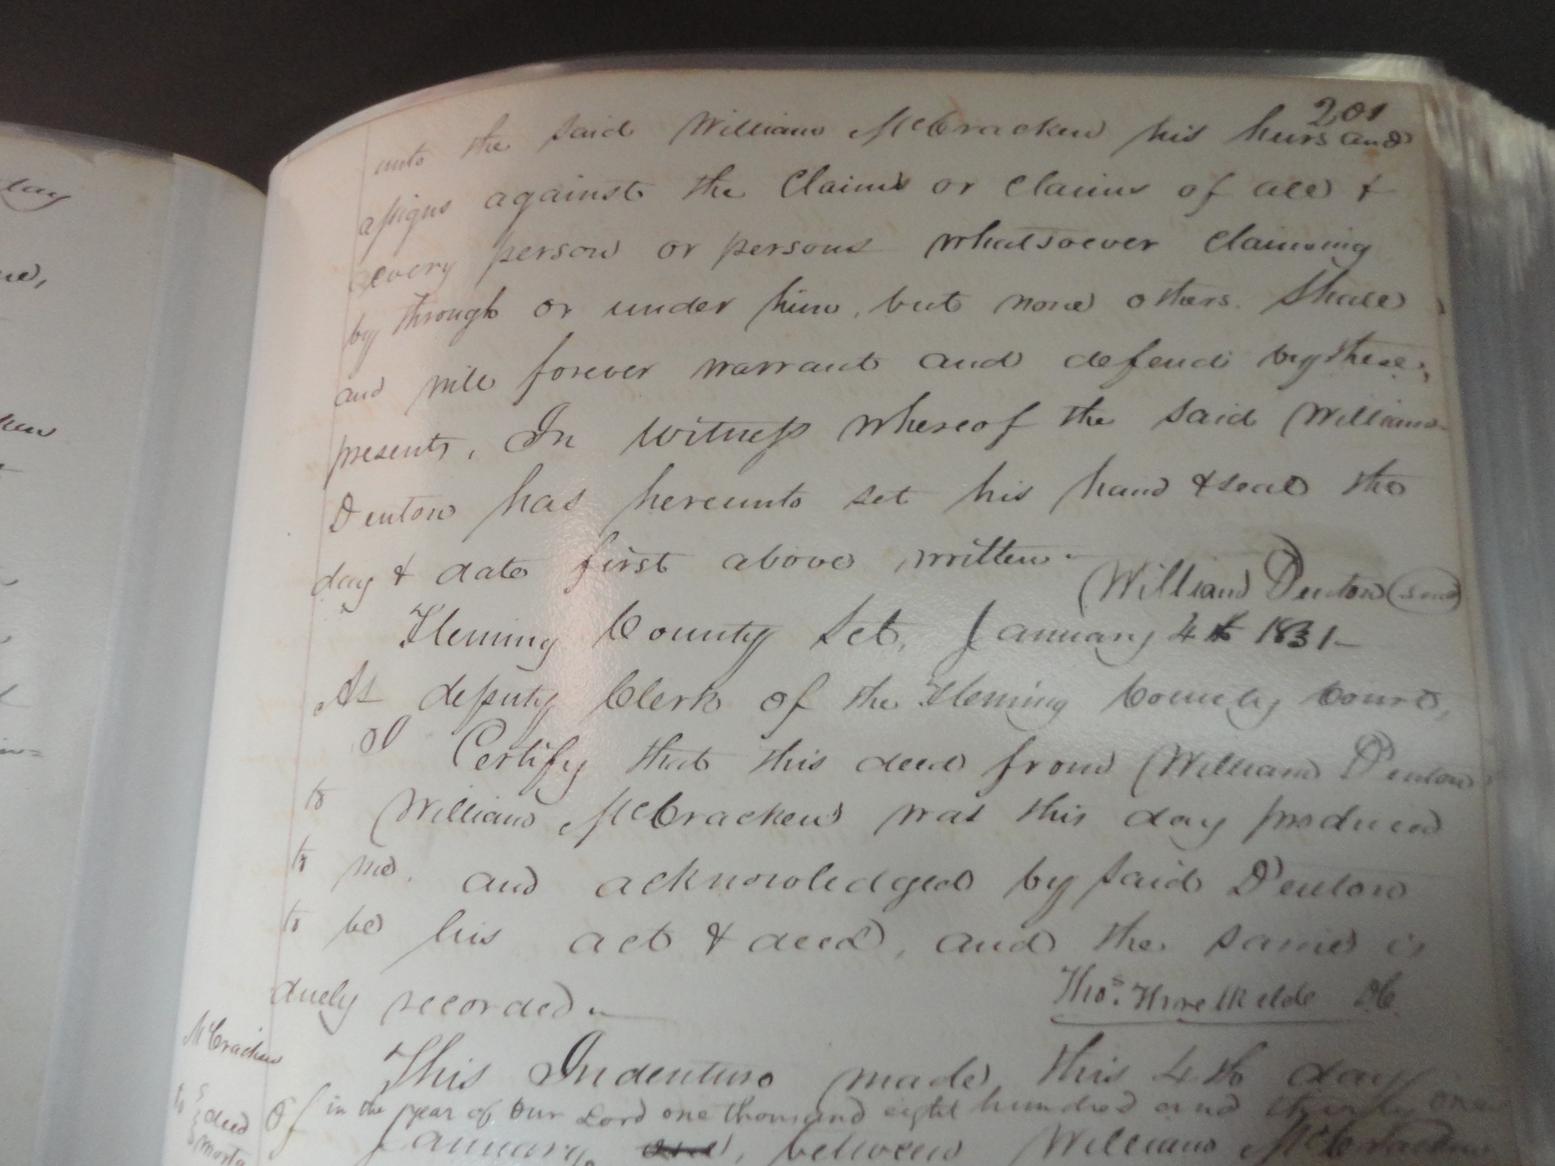 201
unto the said William McCracken his heirs and
assigns against the Claims or claims of all &
every person or persons whatsoever claiming
by through or under him, but none others. Shall
and will forever warrant and defend by these
presents, In witness whereof the said William
Denton has hereunto set his hand & seal the
day & date first above written
William Denton seal
Fleming County Sct. January 4th 1831
As deputy Clerk of the Fleming County Court,
I Certify that this deed from William Denton
to William McCracken was this day produced
to me. and acknowledged by said Denton
to be his act & deed, and the same is
duely recorded.
Thos. Threlkelde DC
McCracken
This Indenture made this 4th day
to deed
of in the year of our Lord one thousand eight hundred and thirty one
January, between William McCracken
day